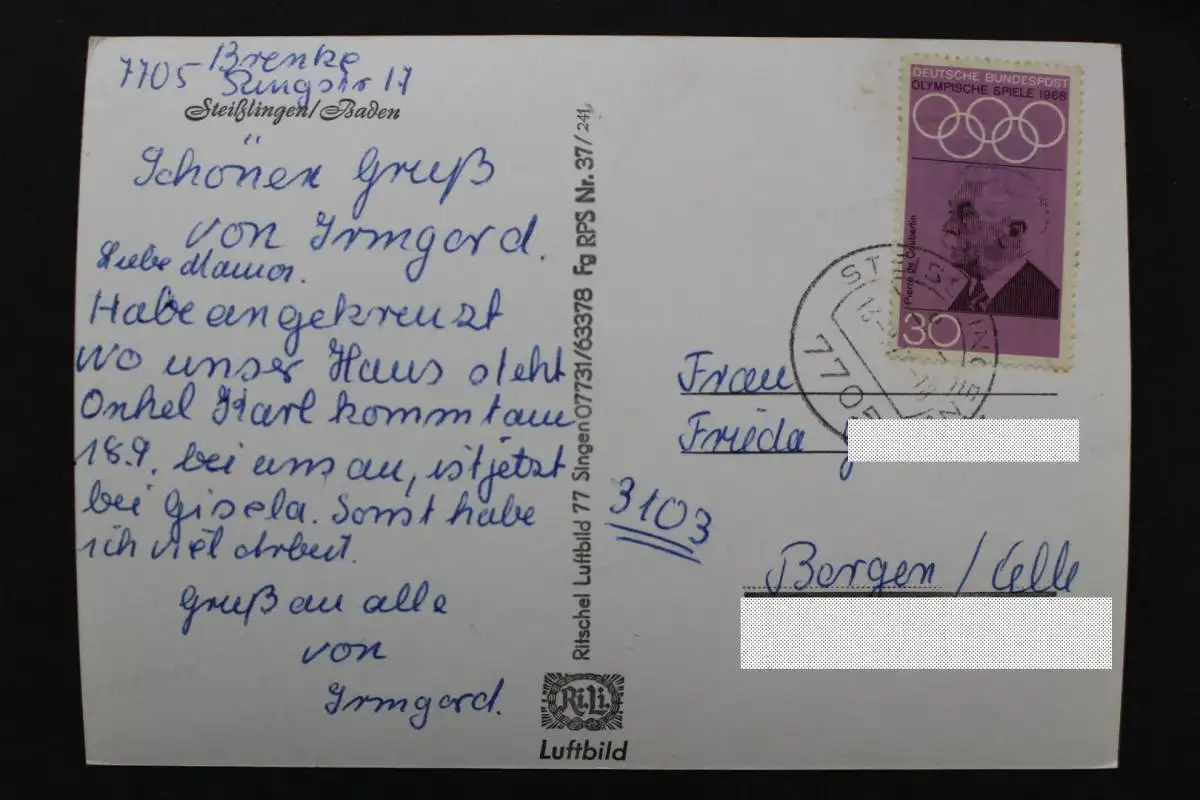 7705 Brenke
Ringstr 17
Steißlingen/Baden
Schönen Gruß
von Irmgard.
Liebe Mama.
Habe angekreuzt
wo unser Haus steht
Onkel Karl kommt am
18.9. bei uns an, ist jetzt
bei Gisela. Sonst habe
ich viel Arbeit.
Gruß an alle
von
Irmgard.
Ritschel Luftbild 77 Singen 07731/63378 Fg RPS Nr. 37/241
Ri.Li.
Luftbild
DEUTSCHE BUNDESPOST
OLYMPISCHE SPIELE 1968
Pierre de Coubertin
30
7705
Frau
Frieda
3103
Bergen / Celle